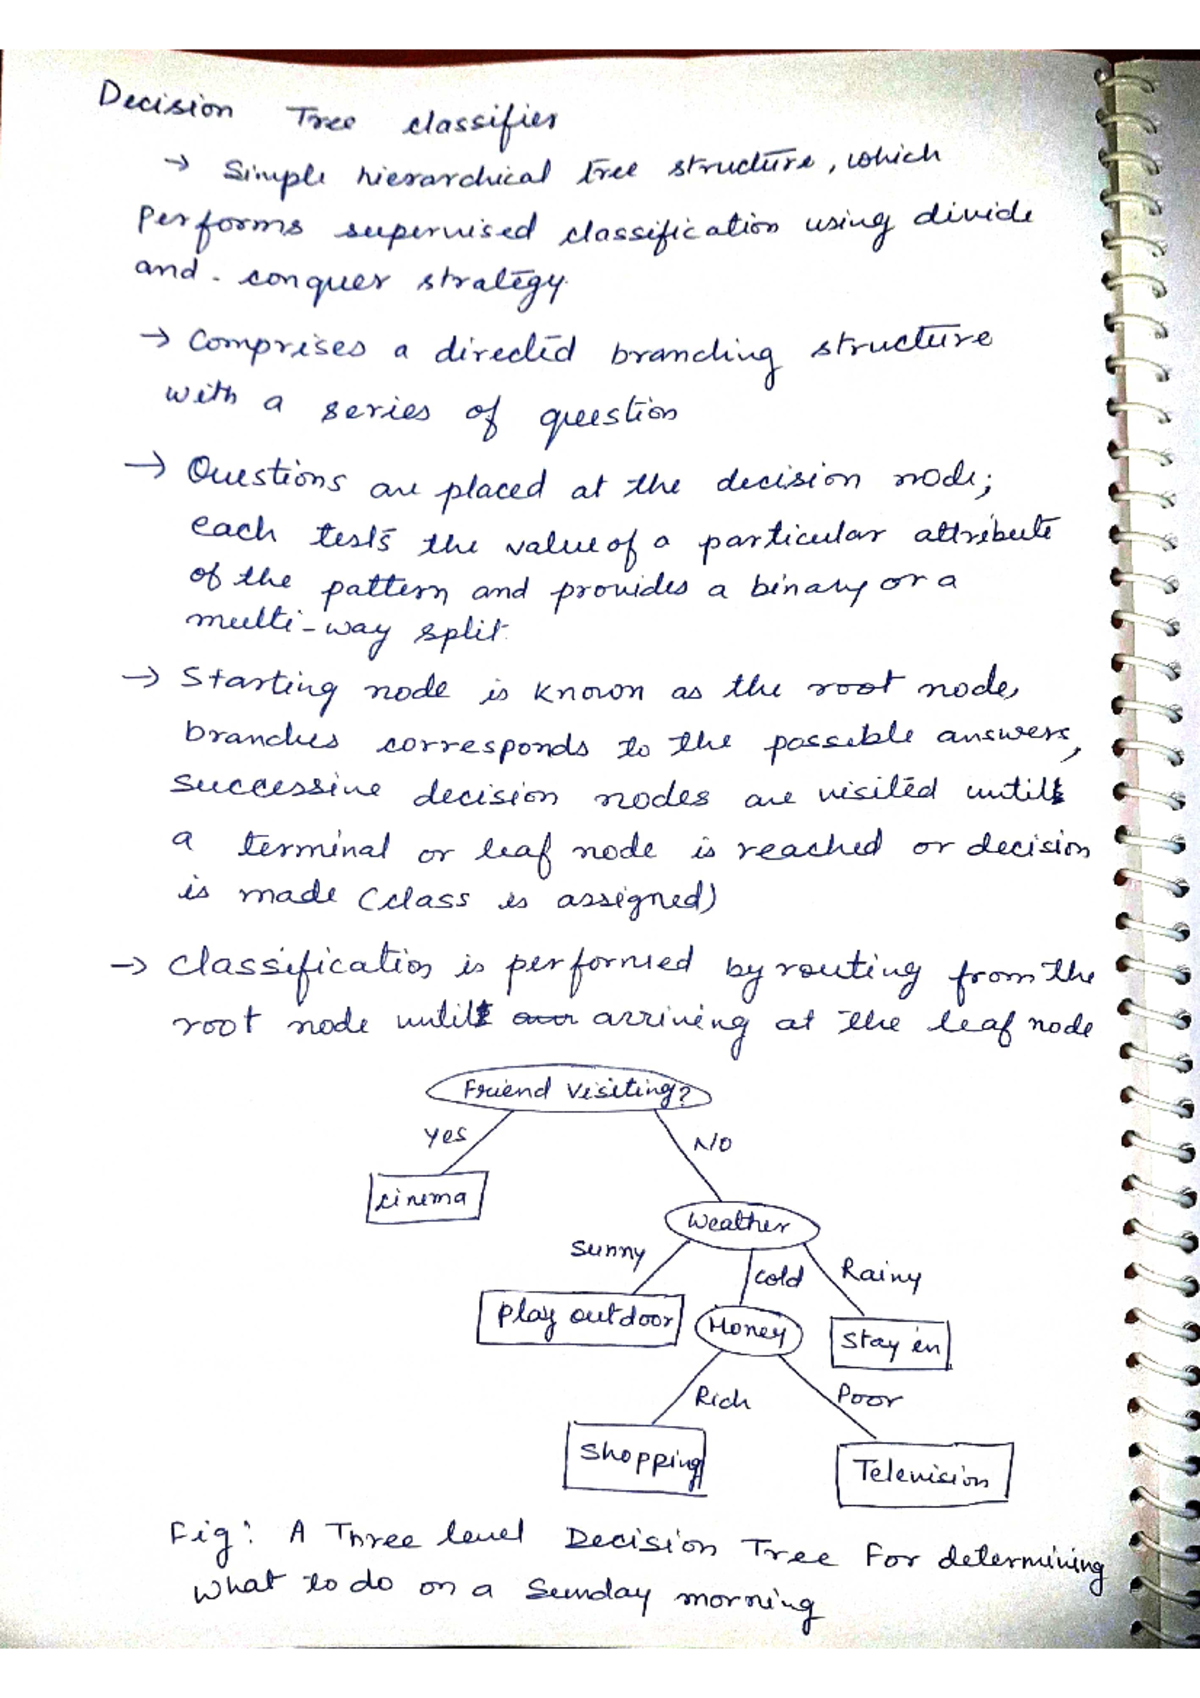 Decision Tree classifier
→ Simple hierarchical tree structure, which
performs supervised classification using divide
and - conquer strategy.
→ Comprises a directed branching structure
with a series of question
→ Questions are placed at the decision node;
each tests the value of a particular attribute
of the pattern and provides a binary or a
multi-way split.
→ Starting node is known as the root node,
branches corresponds to the possible answers,
successive decision nodes are visited until
a terminal or leaf node is reached or decision
is made (class is assigned)
→ Classification is performed by routing from the
root node until arriving at the leaf node
Friend Visiting?
Yes No
Cinema
Weather
Sunny Cold Rainy
Play outdoor Money Stay in
Rich Poor
Shopping Television
Fig: A Three level Decision Tree For determining
what to do on a Sunday morning